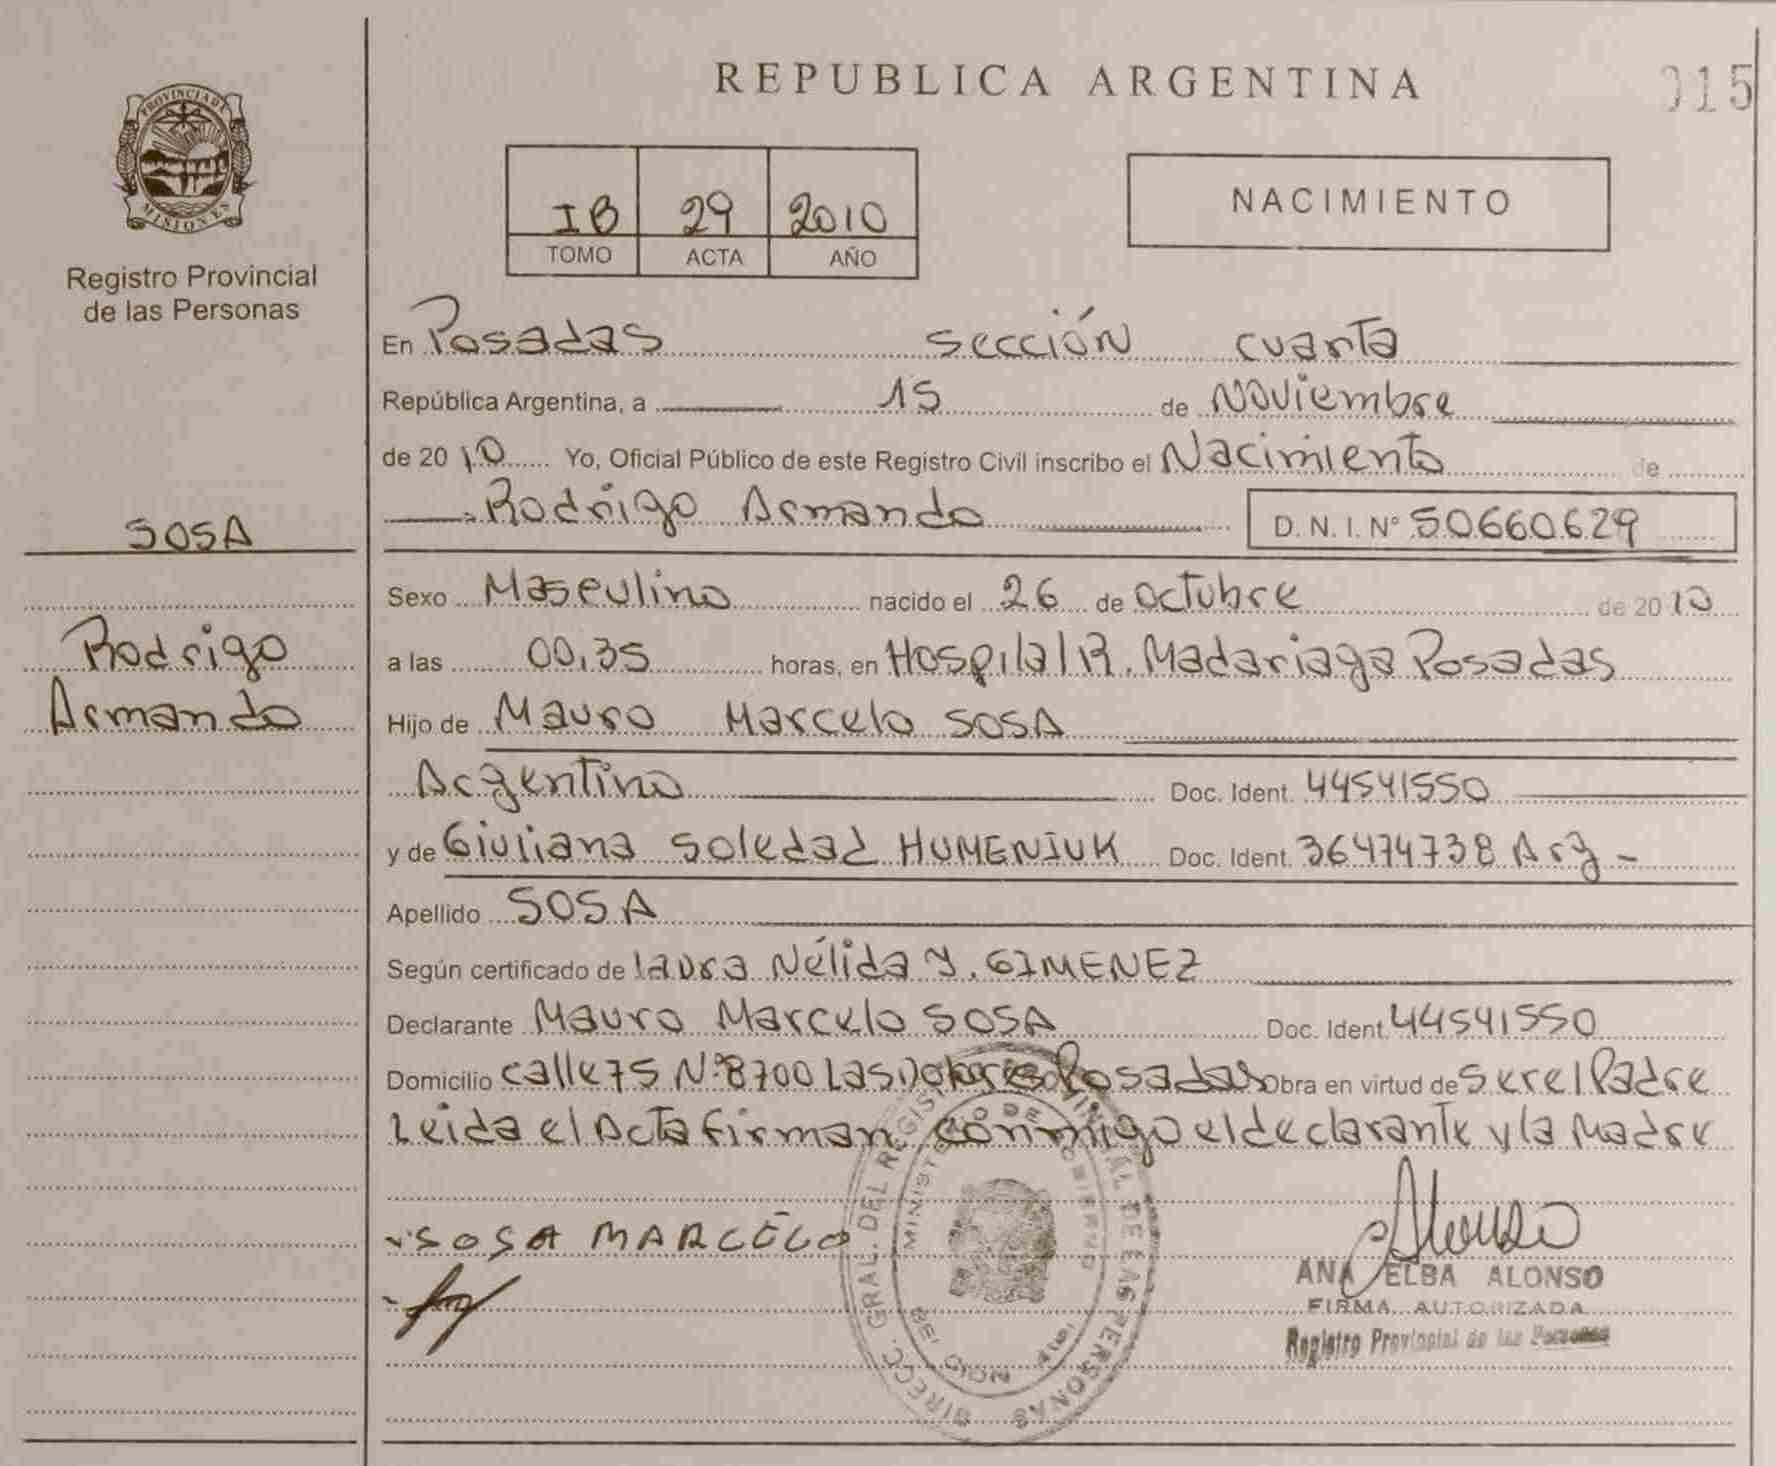 REPUBLICA ARGENTINA
015
PROVINCIA DE
MISIONES
Registro Provincial
de las Personas
IB 29 2010
TOMO ACTA AÑO
NACIMIENTO
En Posadas sección cuarta
República Argentina, a 15 de Noviembre
de 2010 Yo, Oficial Público de este Registro Civil inscribo el Nacimiento de
Rodrigo Armando D. N. I. Nº 50660629
SOSA
Rodrigo
Armando
Sexo Masculino nacido el 26 de octubre de 2010
a las 00,35 horas, en Hospital R. Madariaga Posadas
Hijo de Mauro Marcelo SOSA
Argentino Doc. Ident. 44541550
y de Giuliana Soledad HUMENIUK Doc. Ident. 36474738 Arg -
Apellido SOSA
Según certificado de laura Nélida Y. GIMENEZ
Declarante Mauro Marcelo SOSA Doc. Ident. 44541550
Domicilio calle 75 Nº 8700 Las Dolores Posadas Obra en virtud de ser el Padre
Leida el Acta firman conmigo el declarante y la Madre
SOSA MARCELO
DIRECC. GRAL. DEL REGISTRO PROVINCIAL DE LAS PERSONAS
MINISTERIO DE GOBIERNO
Alonso
ANA ELBA ALONSO
FIRMA AUTORIZADA
Registro Provincial de las Personas